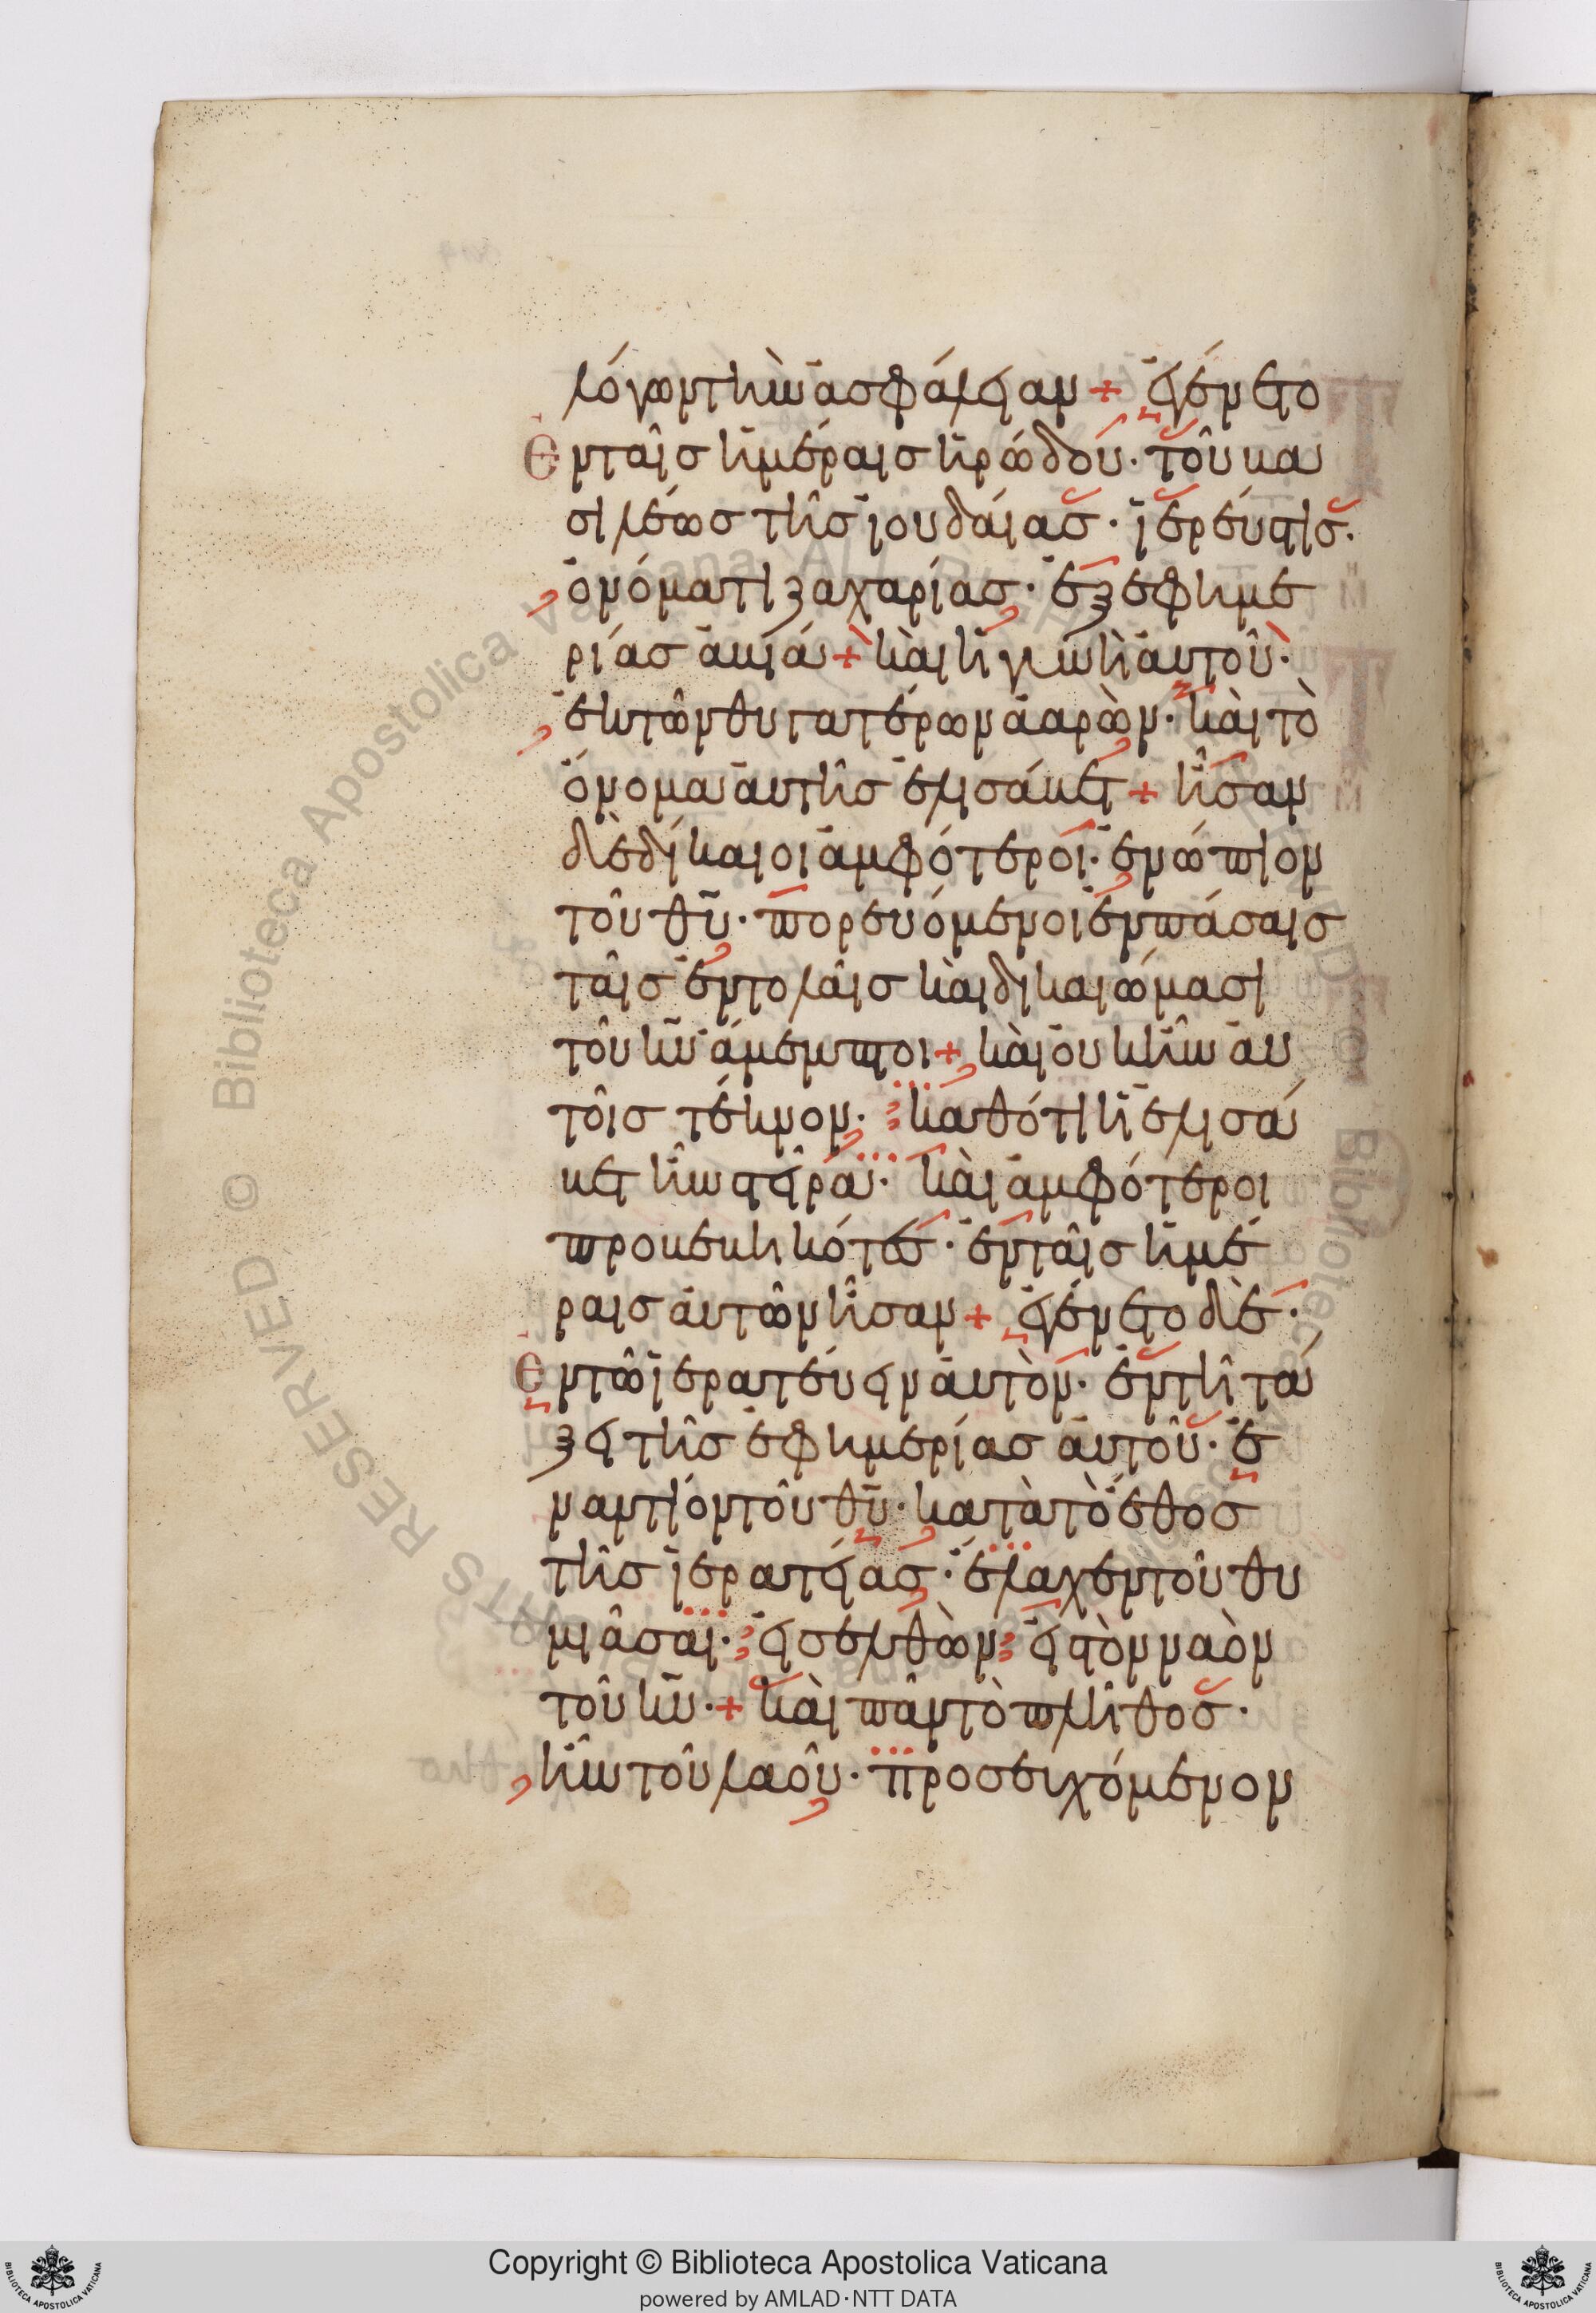 λόγων τὴν ἀσφάλειαν + ἐγένετο
ἐν ταῖς ἡμέραις ἡρώδου· τοῦ βα
σιλέως τῆς ἰουδαίας· ἱερεύς τις·
ὀνόματι ζαχαρίας· ἐξ ἐφημε
ρίας ἀβιά + καὶ ἡ γυνὴ αὐτοῦ·
ἐκ τῶν θυγατέρων ἀαρών· καὶ τὸ
ὄνομα αὐτῆς ἐλισάβετ + ἦσαν
δὲ δίκαιοι ἀμφότεροι· ἐνώπιον
τοῦ θ̅υ̅· πορευόμενοι ἐν πάσαις
ταῖς ἐντολαῖς καὶ δικαιώμασι
τοῦ κ̅υ̅ ἄμεμπτοι + καὶ οὐκ ἦν αὐ
τοῖς τέκνον· καθότι ἡ ἐλισά
βετ ἦν στεῖρα· καὶ ἀμφότεροι
προβεβηκότες· ἐν ταῖς ἡμέ
ραις αὐτῶν ἦσαν + ἐγένετο δὲ·
ἐν τῷ ἱερατεύειν αὐτὸν· ἐν τῇ τά
ξει τῆς ἐφημερίας αὐτοῦ· ἐ
ναντίον τοῦ θ̅υ̅· κατὰ τὸ ἔθος
τῆς ἱερατείας· ἔλαχεν τοῦ θυ
μιᾶσαι· εἰσελθὼν εἰς τὸν ναὸν
τοῦ κ̅υ̅· + καὶ πᾶν τὸ πλῆθος·
ἦν τοῦ λαοῦ· προσευχόμενον
Copyright © Biblioteca Apostolica Vaticana
powered by AMLAD·NTT DATA